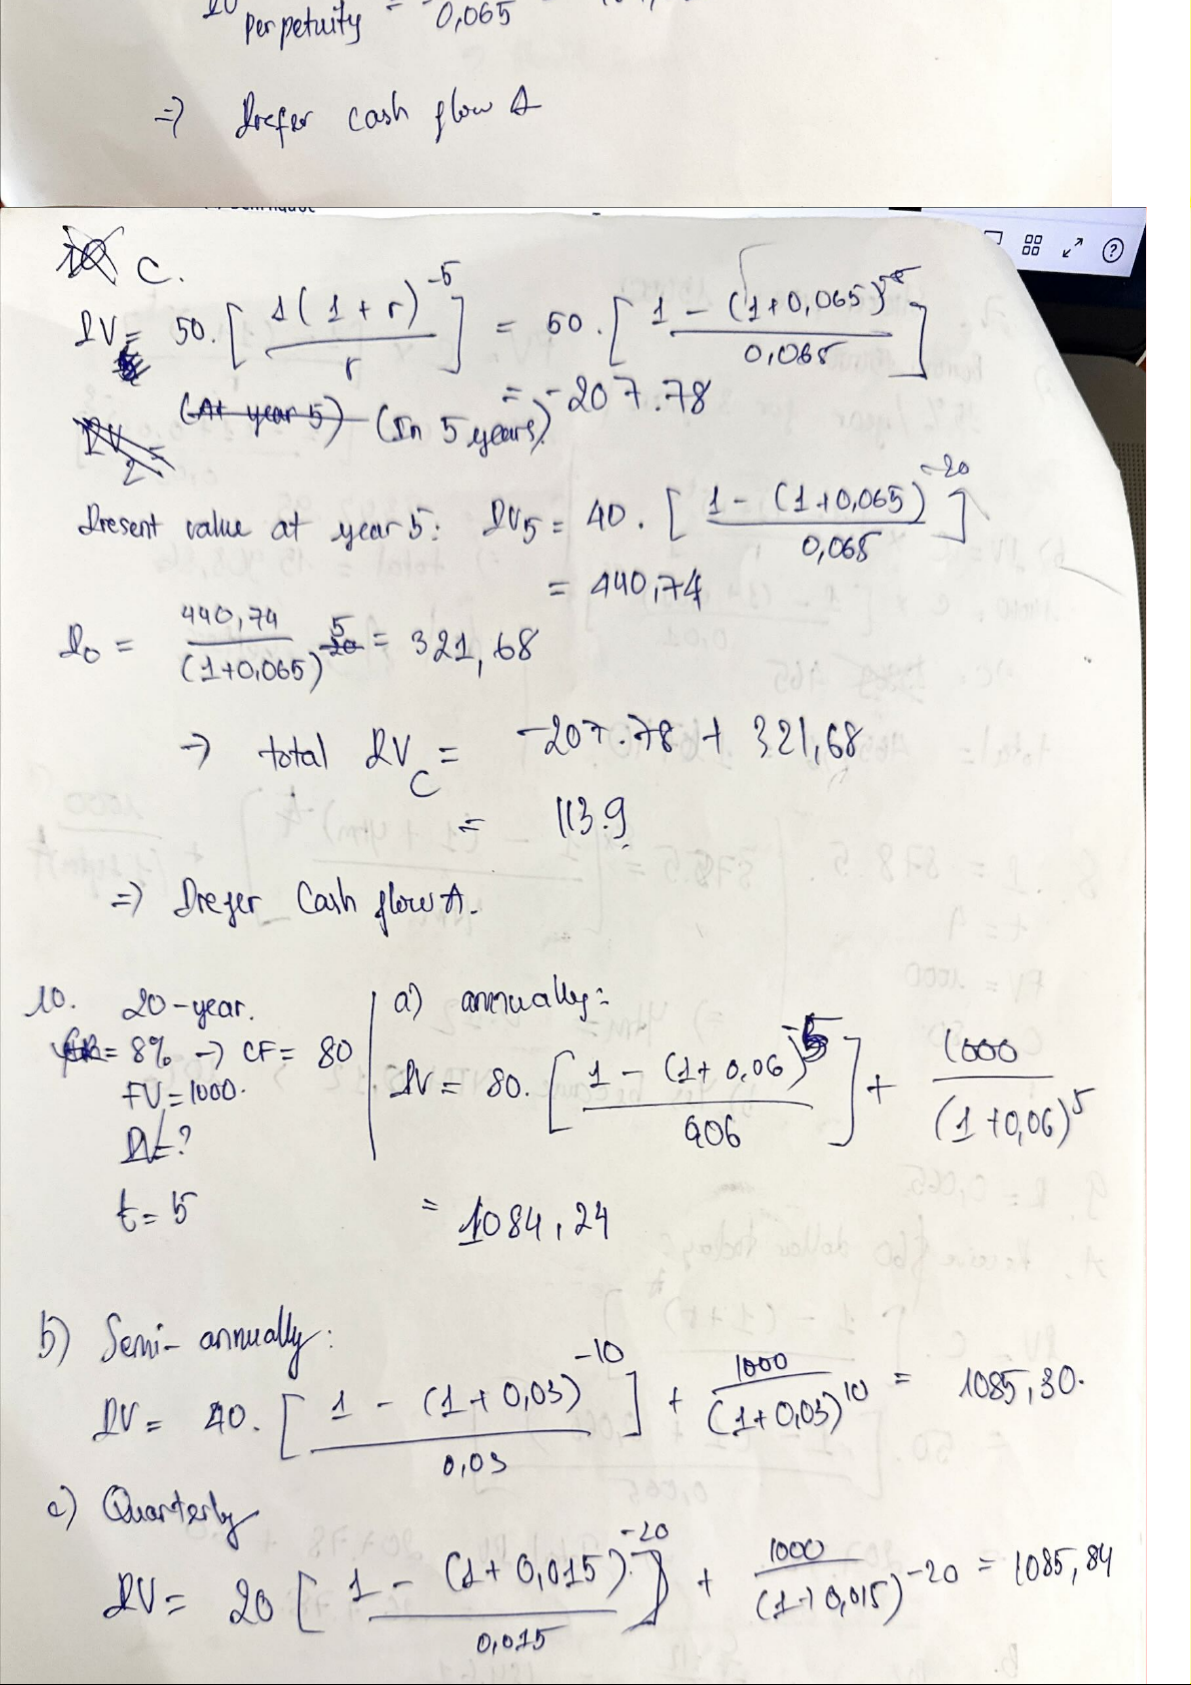 perpetuity = 0,065
=) Prefer cash flow A
C.
PV = 50. [ 1 ( 1 + r)^-5 / r ] = 50. [ 1 - (1+0,065)^5 / 0,065 ]
(At year 5) (In 5 years) = -207.78
PV2 =
Present value at year 5: PV5 = 40. [ 1 - (1+0,065)^-20 / 0,065 ]
= 440,74
P0 = 440,74 / (1+0,065)^5 = 321,68
-> total PVC = -207.78 + 321,68
= 113.9
=) Prefer Cash flow A.
10. 20-year.
= 8% -> CF = 80
FV = 1000.
PV = ?
t = 5
a) annually:
PV = 80. [ 1 - (1+ 0,06)^-5 / 0,06 ] + 1000 / (1+0,06)^5
= 1084,24
b) Semi-annually:
PV = 40. [ 1 - (1+ 0,03)^-10 / 0,03 ] + 1000 / (1+0,03)^10 = 1085,30.
c) Quarterly
PV = 20 [ 1 - (1+ 0,015)^-20 / 0,015 ] + 1000 / (1+0,015)^-20 = 1085,84